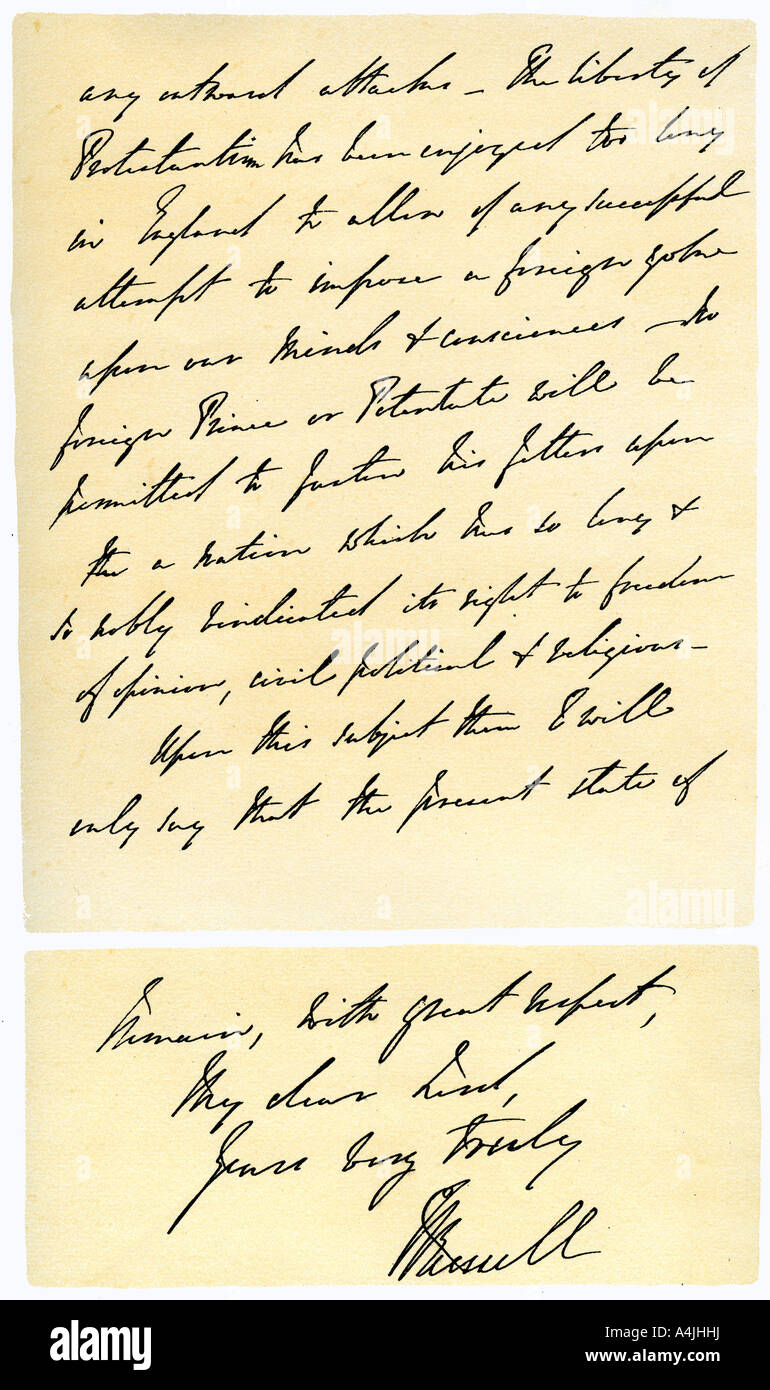 any outward attacks – The liberty of
Protestantism has been enjoyed too long
in England to allow of any successful
attempt to impose a foreign yoke
upon our minds & consciences – No
foreign Prince or Potentate will be
permitted to fasten his fetters upon
the a nation which has so long &
so nobly vindicated its right to freedom
of opinion, civil political & religious –
Upon this subject then I will
only say that the present state of
remain, with great respect,
My dear Lord,
Yours very truly
J Russell
alamy
Image ID: A4JHHJ
www.alamy.com